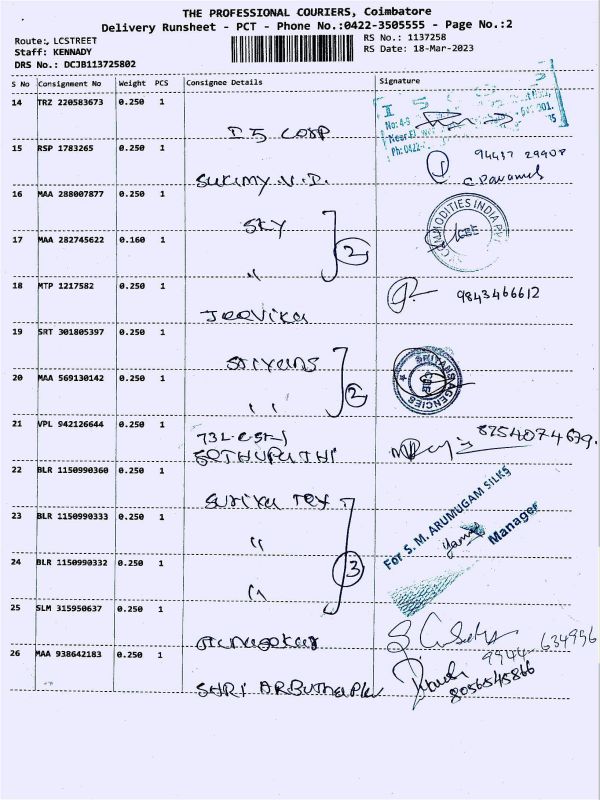 THE PROFESSIONAL COURIERS, Coimbatore
Delivery Runsheet - PCT - Phone No.:0422-3505555 - Page No.:2
Route:, LCSTREET
Staff: KENNADY
DRS No.: DCJB113725802
RS No.: 1137258
RS Date: 18-Mar-2023
S No Consignment No Weight PCS Consignee Details Signature
14 TRZ 220583673 0.250 1
I 5 CORP
No: 4-9
Ph: 0422-
15 RSP 1783265 0.250 1
94437 29908
16 MAA 288007877 0.250 1
SKY
COMMODITIES INDIA PVT
CBE
17 MAA 282745622 0.160 1
" 2
18 MTP 1217582 0.250 1
Jeevika
9843466612
19 SRT 301805397 0.250 1
BRITANS AGENCIES
CBE
20 MAA 569130142 0.250 1
" 2
21 VPL 942126644 0.250 1
8254074679.
22 BLR 1150990360 0.250 1
For S. M. ARUMUGAM SILKS
Manager
23 BLR 1150990333 0.250 1
"
24 BLR 1150990332 0.250 1
" 3
25 SLM 315950637 0.250 1
9944-634956
26 MAA 938642183 0.250 1
SHRI
8056545866